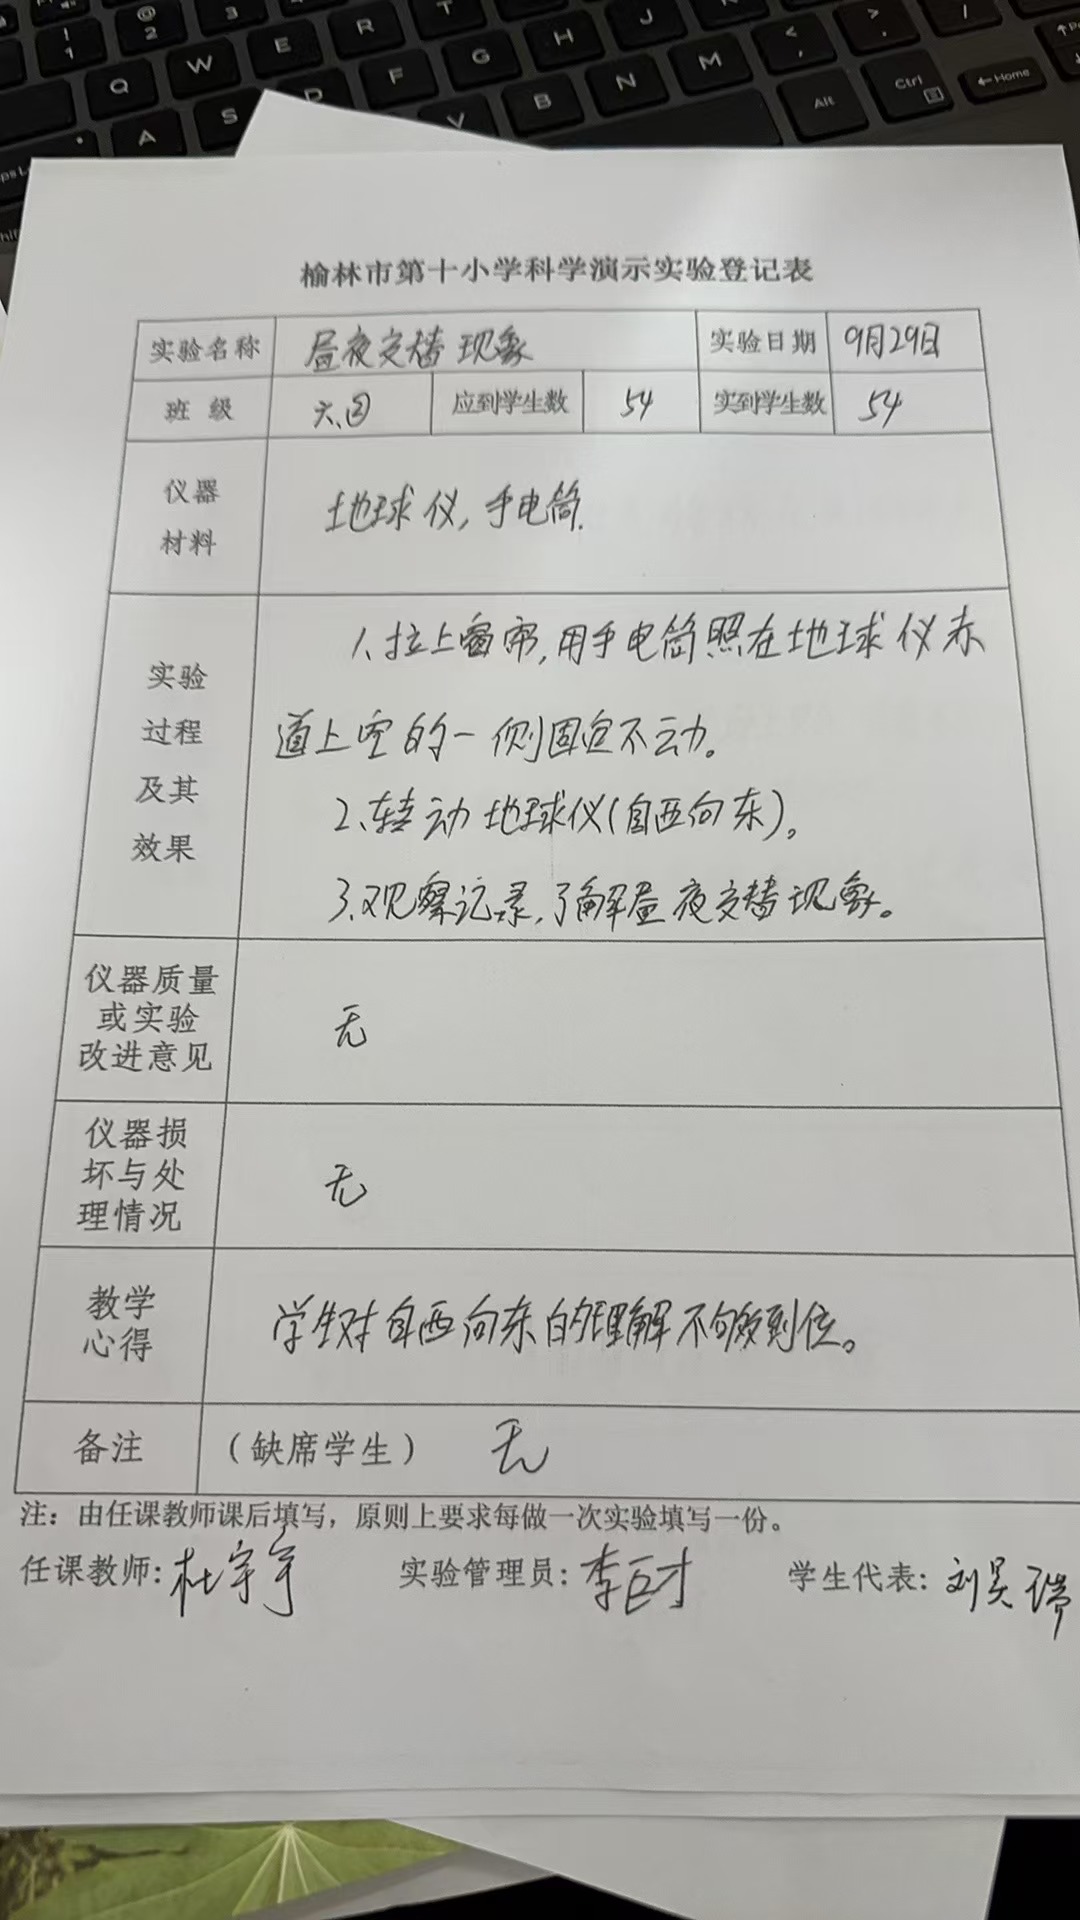 榆林市第十小学科学演示实验登记表
实验名称 昼夜交替现象 实验日期 9月29日
班 级 六、④ 应到学生数 54 实到学生数 54
仪器
材料
地球仪,手电筒.
实验
过程
及其
效果
1、拉上窗帘,用手电筒照在地球仪赤
道上空的一侧固定不动。
2、转动地球仪(自西向东)。
3、观察记录,了解昼夜交替现象。
仪器质量
或实验
改进意见
无
仪器损
坏与处
理情况
无
教学
心得
学生对自西向东的理解不够到位。
备注 (缺席学生) 无
注:由任课教师课后填写,原则上要求每做一次实验填写一份。
任课教师:杜宇宁 实验管理员:李巨才 学生代表:刘昊瑞
! 1 @ 2
Q W E R T
A S D F G H J
V B N M < , > . /
Alt Ctrl Home